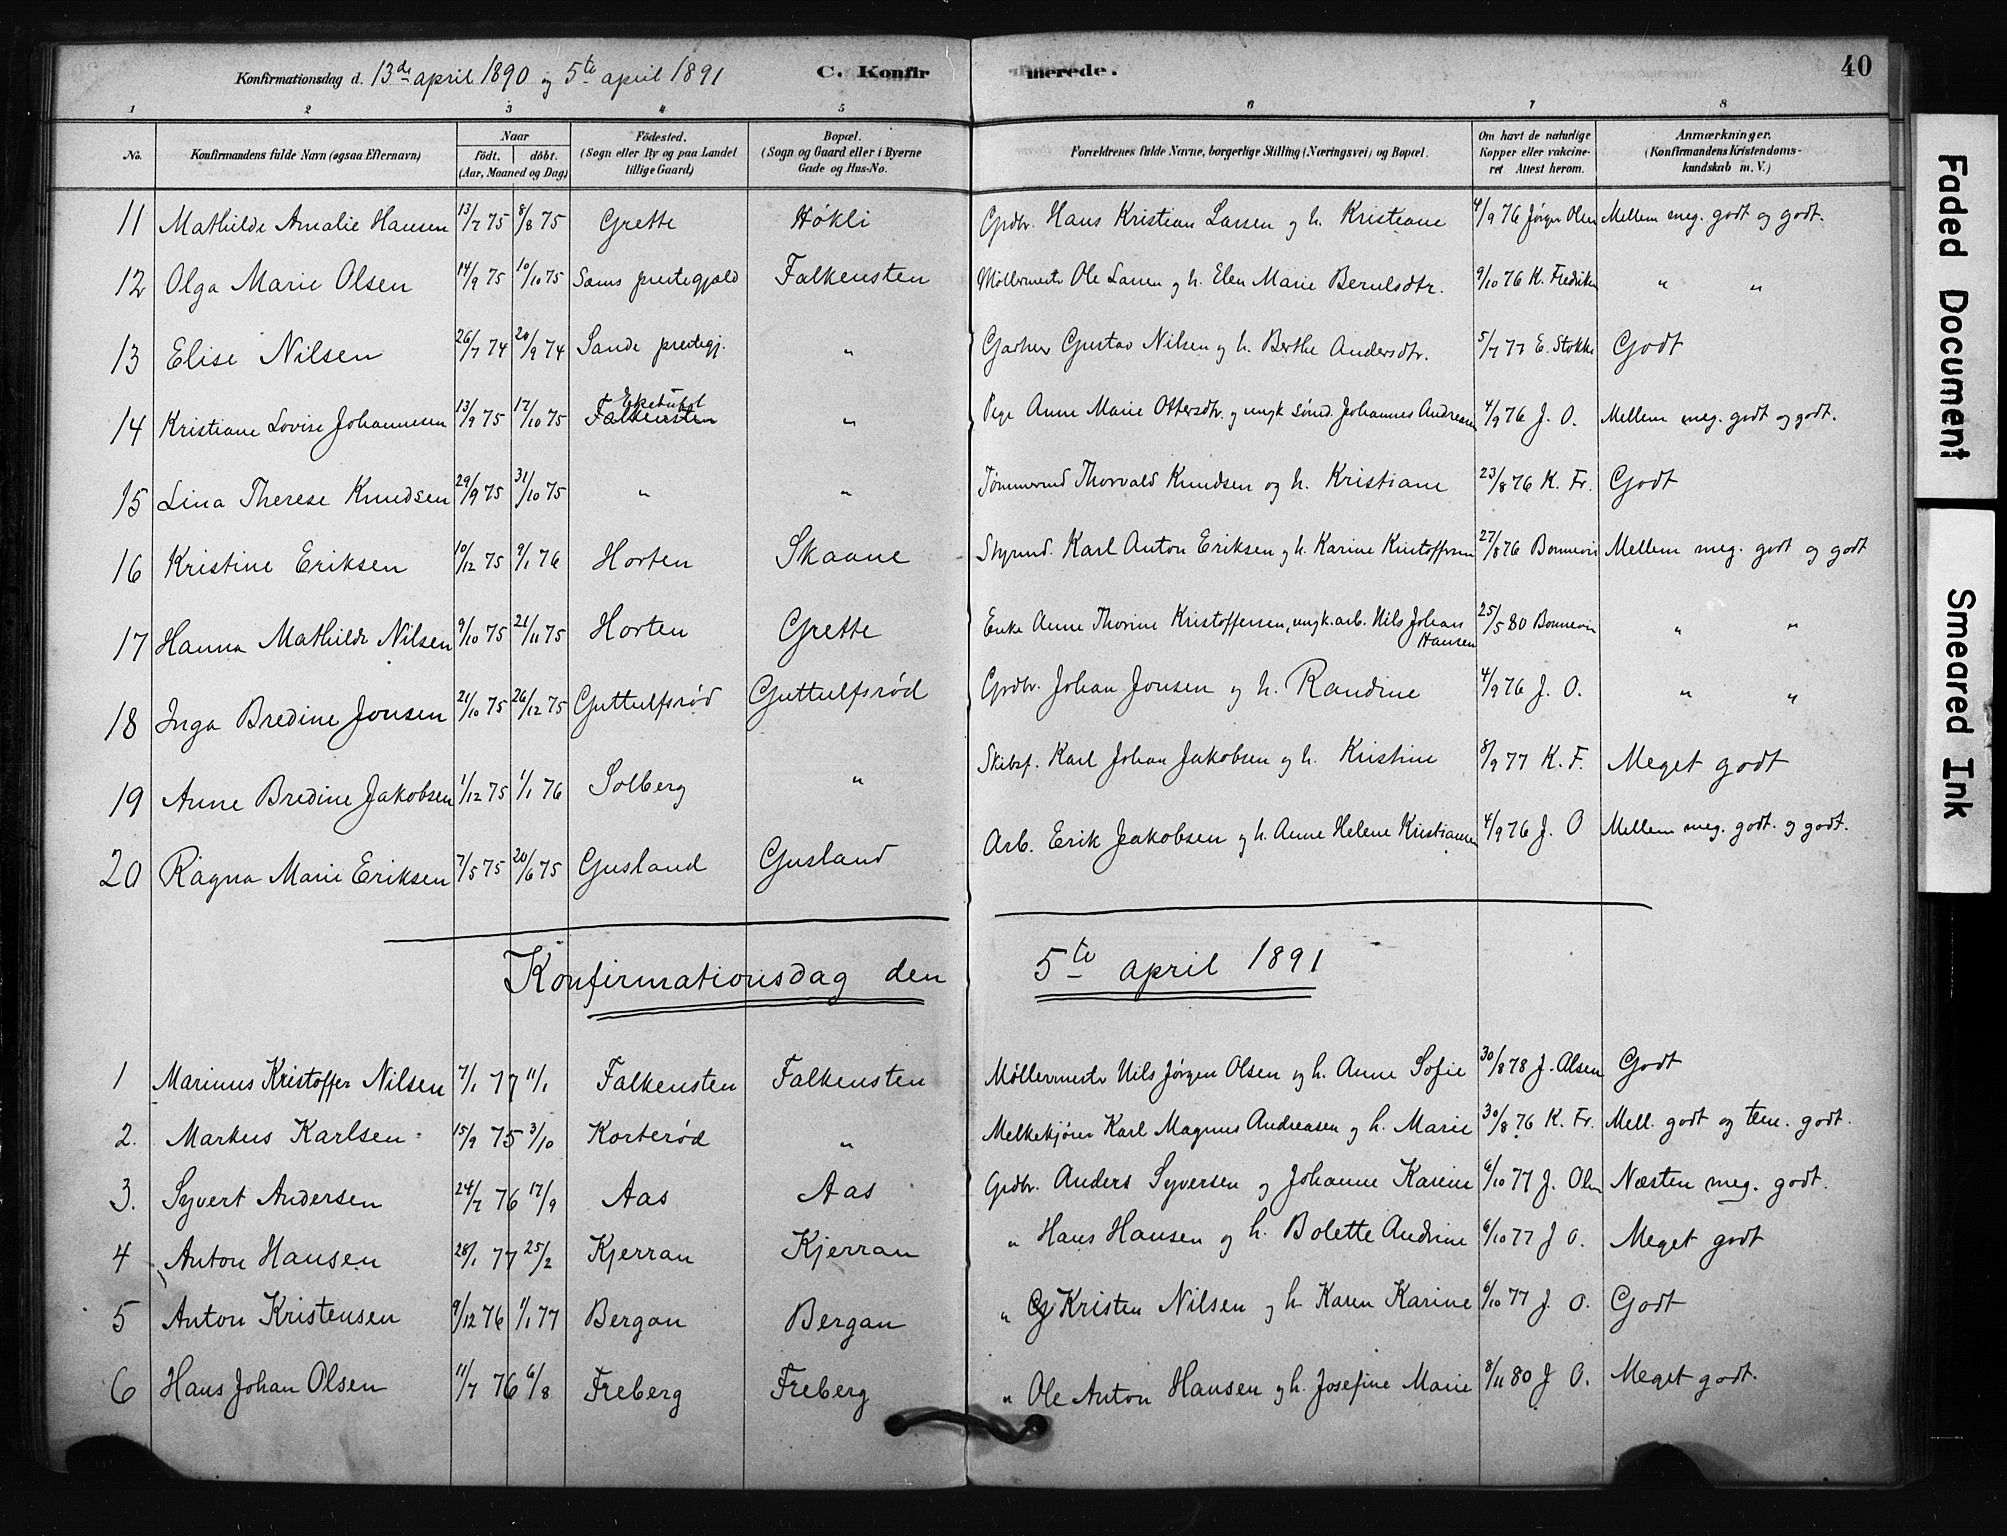 Konfirmationsdag d. 13de april 1890 og 5te april 1891 C. Konfirmerede. 40
1 2 3 4 5 6 7 8
No. Konfirmandens fulde Navn (ogsaa Efternavn) Naar födt. döbt. (Aar, Maaned og Dag) Födested. (Sogn eller By og paa Landet tillige Gaard) Bopæl. (Sogn og Gaard eller i Byerne Gade og Hus-No. Forældrenes fulde Navne, borgerlige Stilling (Næringsvei) og Bopæl. Om havt de naturlige Kopper eller vakcineret Attest herom. Anmærkninger. (Konfirmandens Kristendomskundskab m. V.)
11 Mathilde Amalie Hansen 13/7 75 8/8 75 Grette Høkli Grdbr. Hans Kristian Larsen og h. Kristiane 4/9 76 Jørgen Olsen Mellem meg. godt og godt.
12 Olga Marie Olsen 14/9 75 10/10 75 Sams prestegjæld Falkensten Møllermester Ole Larsen og h. Elen Marie Berntsdtr. 9/10 76 K. Fredriksen " "
13 Elise Nilsen 26/7 74 20/9 74 Sande prestegj. " Gartner Gustav Nilsen og h. Berthe Andersdtr. 5/7 77 E. Stokke Godt
14 Kristiane Lovise Johannesen 13/9 75 17/10 75 Falkensten " Pige Anne Marie Ottersdtr. og ungk. sømd. Johannes Andreasen 4/9 76 J. O. Mellem meg. godt og godt.
15 Lina Therese Knudsen 29/9 75 31/10 75 " " Tømmermd Thorvald Knudsen og h. Kristiane 23/8 76 K. Fr. Godt
16 Kristine Eriksen 10/12 75 9/1 76 Horten Skaane Styrmd. Karl Anton Eriksen og h. Karine Kristoffersen 27/8 76 Bonnevie Mellem meg. godt og godt
17 Hanna Mathilde Nilsen 9/10 75 21/11 75 Horten Grette Enke Anne Thorine Kristoffersen, ungk. arb. Nils Johan Hansen 25/5 80 Bonnevie " "
18 Inga Bredine Jonsen 21/10 75 26/12 75 Guttulfsrød Guttulfsrød Grdbr. Johan Jonsen og h. Randine 4/9 76 J. O. " "
19 Anne Bredine Jakobsen 1/12 75 1/1 76 Solberg " Skibsf. Karl Johan Jakobsen og h. Kristine 8/9 77 K. F. Meget godt
20 Ragna Marie Eriksen 7/5 75 20/6 75 Gusland Gusland Arb. Erik Jakobsen og h. Anne Helene Kristiansen 4/9 76 J. O Mellem meg. godt. og godt.
Konfirmationsdag den 5te april 1891
1 Marinus Kristoffer Nilsen 7/1 77 11/1 Falkensten Falkensten Møllermester Nils Jørgen Olsen og h. Anne Sofie 30/8 78 J. Olsen Godt
2. Markus Karlsen 15/9 75 3/10 Korterød " Melkekjører Karl Magnus Andreasen og h. Marie 30/8 76 K. Fr. Mell. godt og tem. godt.
3. Syvert Andersen 24/7 76 17/9 Aas Aas Grdbr. Anders Syversen og Johanne Karine 6/10 77 J. Olsen Næsten meg. godt.
4 Anton Hansen 28/1 77 25/2 Kjerran Kjerran " Hans Hansen og h. Bolette Andrine 6/10 77 J O. Meget godt
5 Anton Kristensen 9/12 76 1/1 77 Bergan Bergan " Kristen Nilsen og h. Karen Karine 6/10 77 J. O. Godt
6 Hans Johan Olsen 11/7 76 6/8 Freberg Freberg " Ole Anton Hansen og h. Josefine Marie 8/11 80 J O. Meget godt.
Faded Document
Smeared Ink